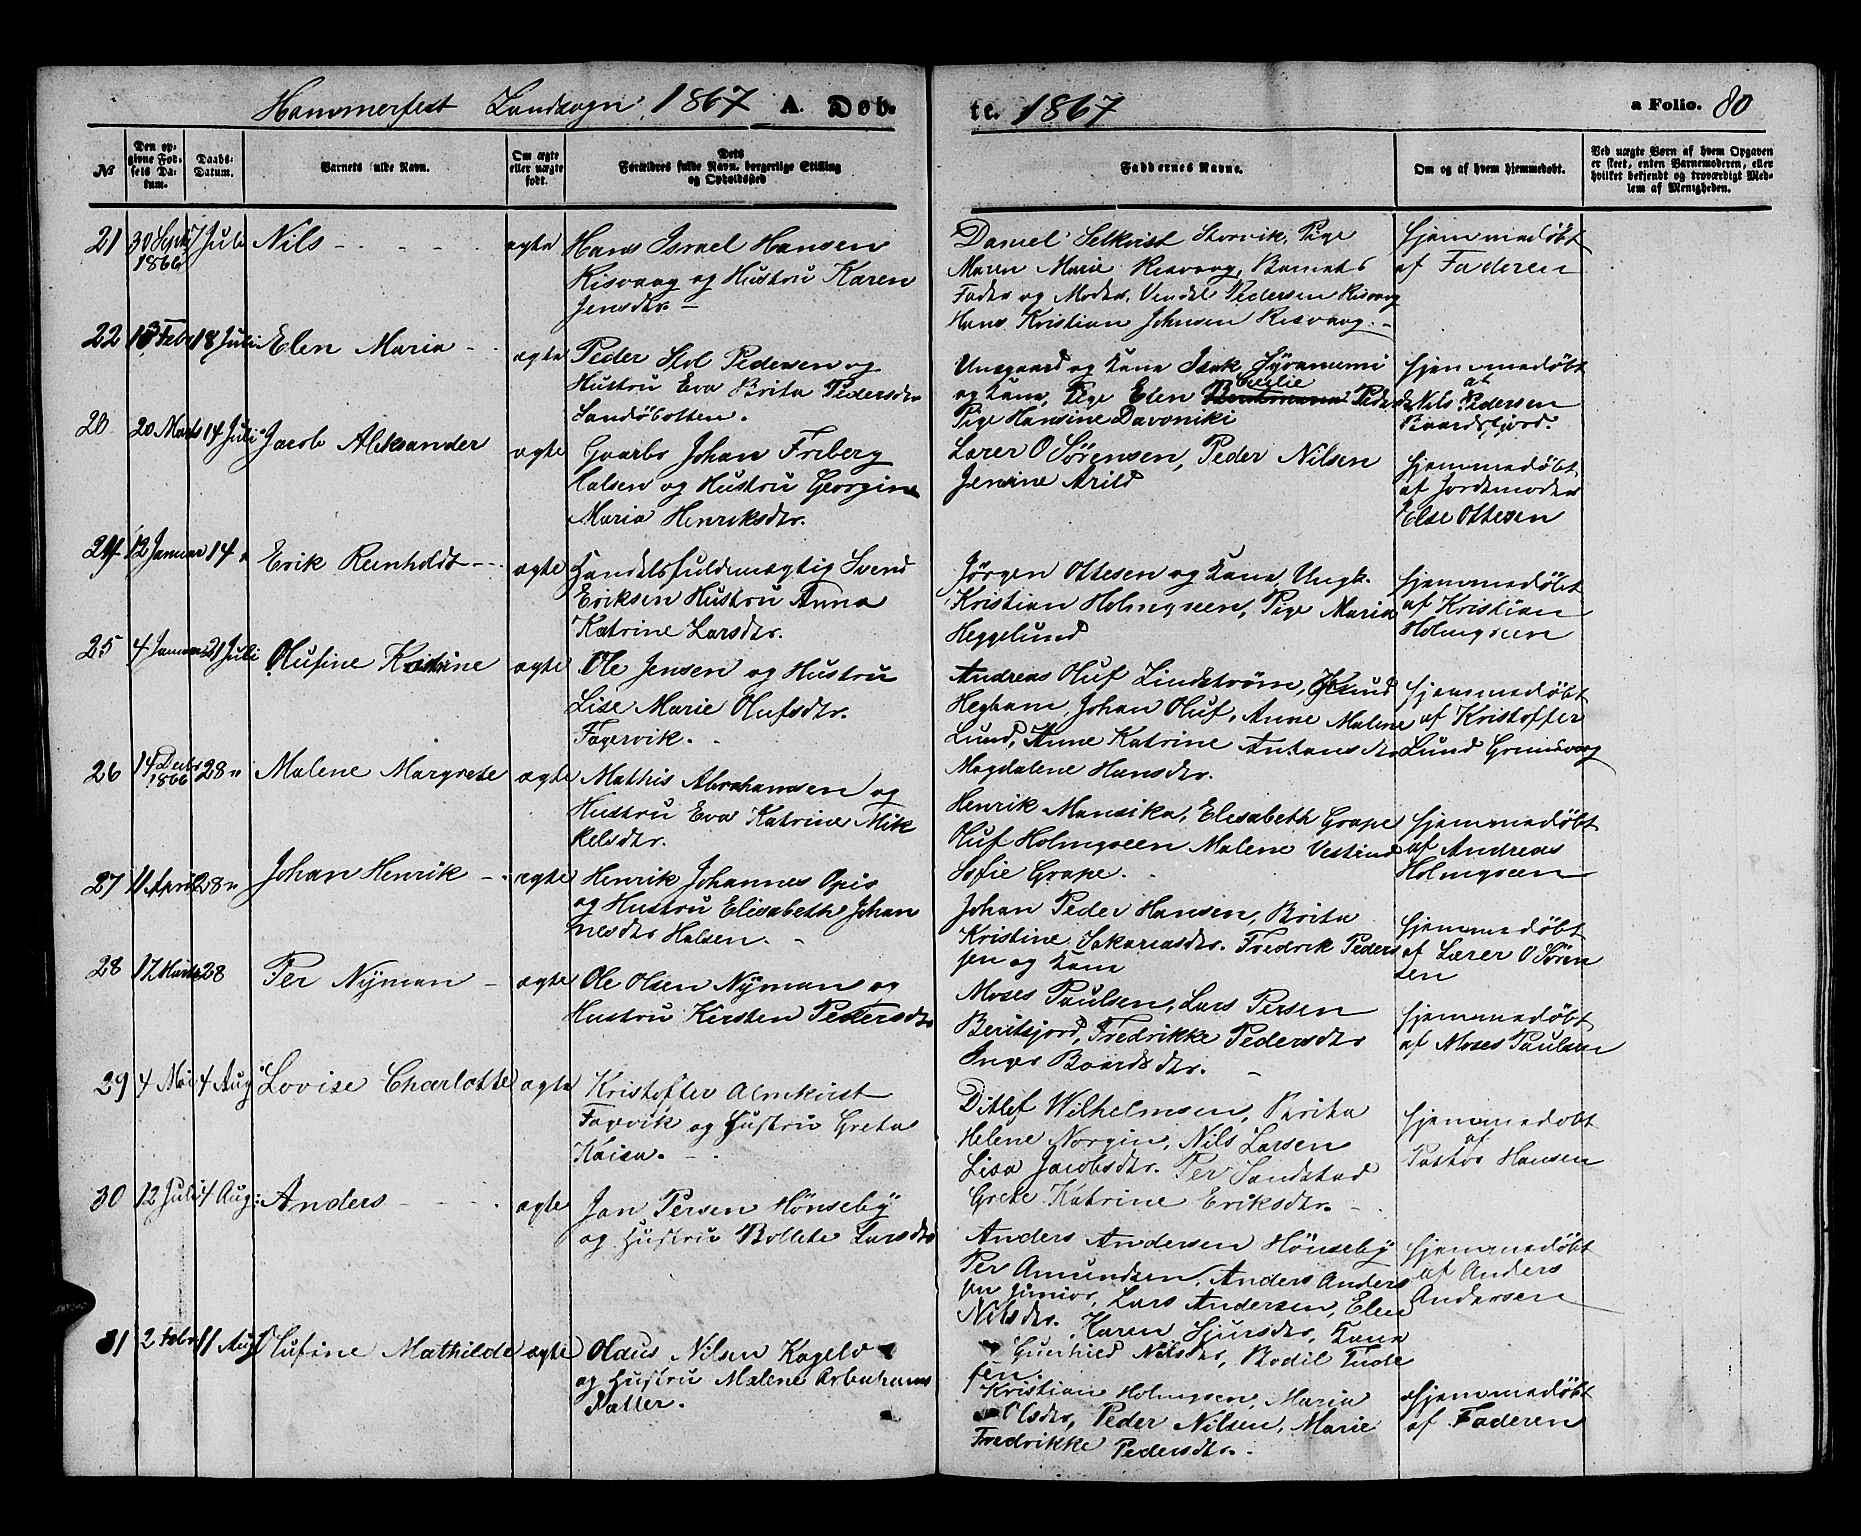 Hammerfest Landsogn 1867 A. Døb-
te. 1867
a Folio. 80
No
Den op-
givne Fød-
sels Da-
tum.
Daabs-
Datum.
Barnets fulde Navn.
Om ægte
eller uægte
født.
Dets
Forældres fulde Navn, borgerlige Stilling
og Opholdssted
Faddernes Navne.
Om og af hvem hjemmedøbt.
Ved uægte Børn af hvem Opgaven
er skeet, enten Barnemoderen, eller
hvilket bekjendt og troværdigt Med-
lem af Menigheden.
21 30 Septb 1866 7 Juli Nils ægte
Hans Israel Hansen
Risvaag og Hustru Karen
Jensdtr.
Daniel Selkvist Storvik, Pige
Maren Marie Risvaag, Barnets
Fader og Moder, Vendel Pedersen Risvaag
Hans Kristian Johnsen Risvaag.
Hjemmedøbt
af Faderen
22 13 Febr 18 Juli Elen Maria ægte
Peder Pedersen og
Hustru Eva Brita Pedersdtr
Sandøbotten.
Ungaard og Kone Isak
og Kone, Pige Elen Cecilie
Pige Hansine Davoniki
Hjemmedøbt
af
Nils Pedersen
Baardsfjord.
23 20 Marts 14 Juli Jacob Aleksander ægte
Gaarbr Johan Friberg
Halsen og Hustru Georgine
Maria Henriksdtr.
Lærer O Sørensen, Peder Nilsen
Jenine Arild
Hjemmedøbt
af Jordemoder
Else Ottesen
24 12 Januar 14 " Erik Reinholdt ægte
Handelsfuldmægtig Svend
Eriksen Hustru Anna
Katrine Larsdtr.
Jørgen Ottesen og Kone, Ungk.
Kristian Holmgreen, Pige Maria
Heggelund
Hjemmedøbt
af Kristian
Holmgreen
25 4 Januar 21 Juli Olufine Kristine ægte
Ole Jensen og Hustru
Lise Marie Olufsdtr.
Fagervik.
Andreas Oluf Lindstrøm, Knud
Hegbom, Johan Oluf, Anne Malene
Lund, Anne Katrine Antonsdtr
Magdalene Hansdtr.
Hjemmedøbt
af Kristoffer
Lund Grundvaag
26 14 Decbr 1866 28 " Malene Margrete ægte
Mathis Abrahamsen og
Hustru Eva Katrine Mik
kelsdtr.
Henrik Mansika, Elisabeth Grape
Oluf Holmgreen Malene Vestlund
Sofie Grape.
Hjemmedøbt
af Andreas
Holmgreen
27 11 April 28 " Johan Henrik ægte
Henrik Johannes Opis
og Hustru Elisabeth Johan
nesdtr Halsen.
Johan Peder Hansen, Brita
Kristine Sakariasdtr. Fredrik Peder
sen og Kone
Hjemmedøbt
af Lærer O Søren
sen
28 17 Marts 28 Per Nyman ægte
Ole Olsen Nyman og
Hustru Kirsten Pedersdtr
Moses Paulsen, Lars Persen
Beritsjord, Fredrikke Pedersdtr
Inger Baardsdtr.
Hjemmedøbt
af Moses Paulsen
29 4 Mai 4 Aug Lovise Charlotte ægte
Kristoffer Almkvist
Fagervik og Hustru Greta
Kaisa.
Ditlef Wilhelmsen, Brita
Helene Norgin, Nils Larsen
Lisa Jacobsdtr. Per Sandstad
Grete Katrine Eriksdtr.
Hjemmedøbt
af
Pastor Hansen
30 12 Juli 4 Aug: Anders ægte
Jan Persen Hønseby
og Hustru Bollete Larsdtr
Anders Andersen Hønseby
Per Amundsen, Anders Anders
sen junior, Lars Andersen, Elen
Nilsdtr. Karen Sjursdtr, Kone
Gunhild Nilsdtr, Bodil Tude
sen.
Hjemmedøbt
af Anders
Andersen
31 2 Febr 11 Aug Olufine Mathilde ægte
Olaus Nilsen Kagelv
og Hustru Malene Abrahams
Datter.
Kristian Holmgreen, Maria
Olsdtr, Peder Nilsen, Marie
Fredrikke Pedersdtr.
Hjemmedøbt
af Faderen